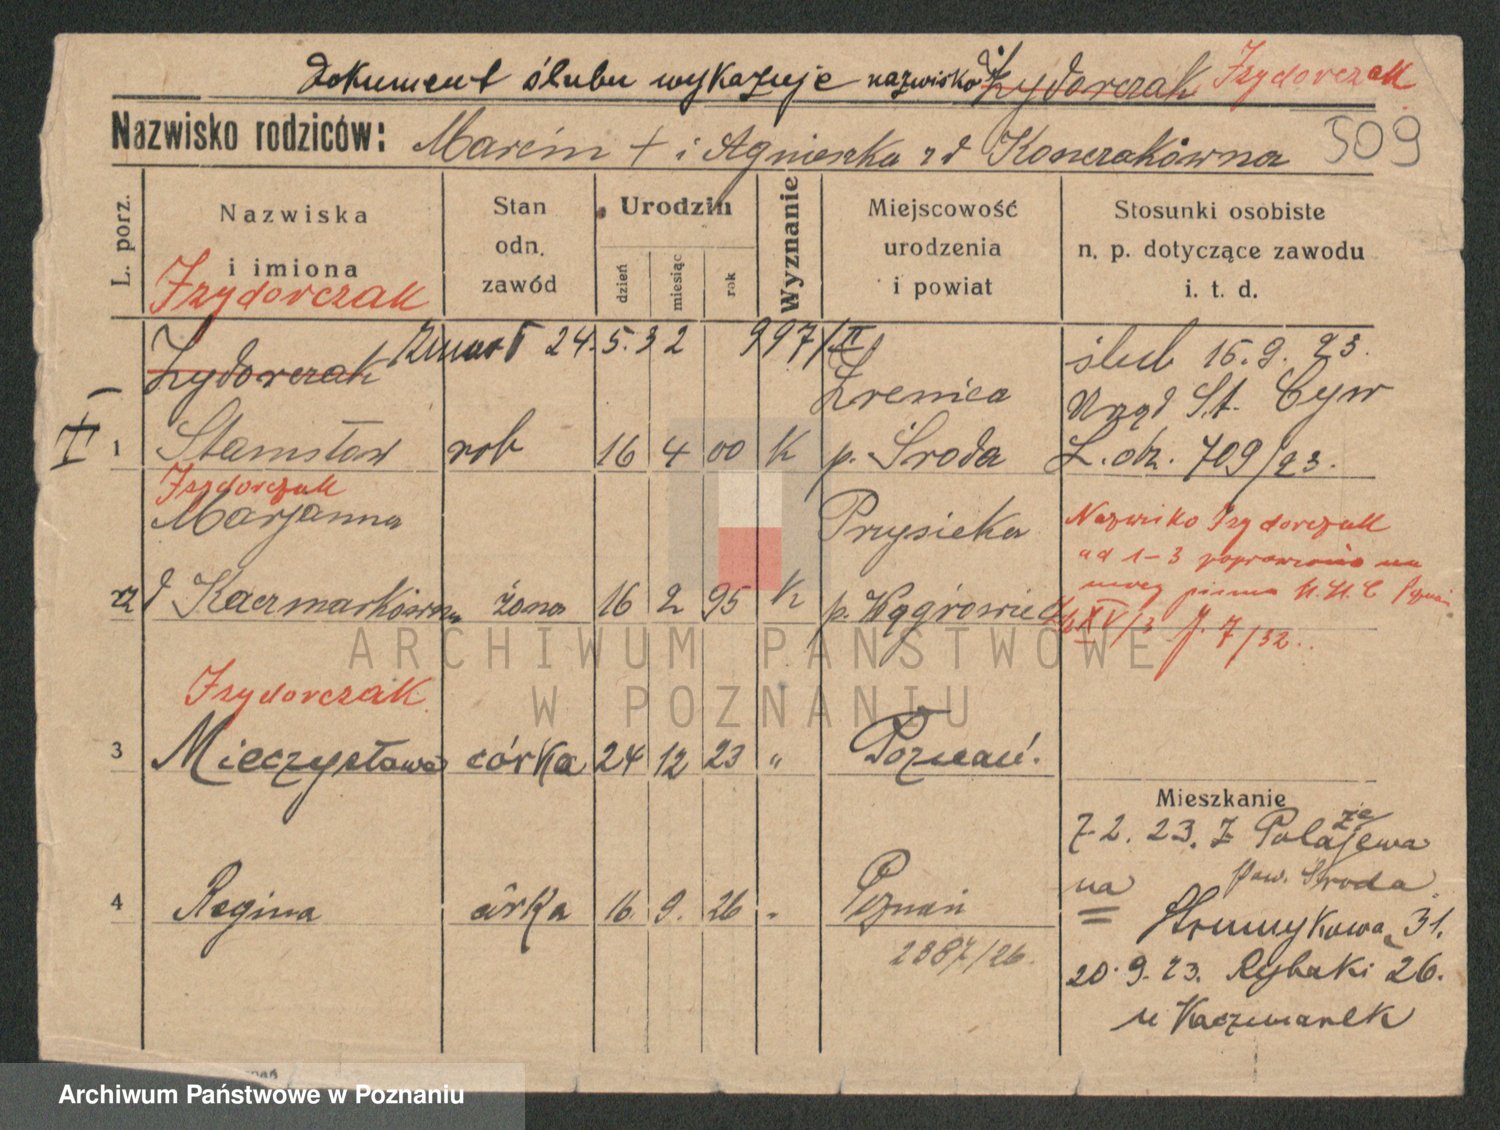 dokument ślubu wykazuje nazwisko Zydorczak Izydorczak
Nazwisko rodziców: Marcin + i Agnieszka zd Konczakówna 509
L. porz.
Nazwiska
i imiona
Izydorczak
Stan
odn.
zawód
Urodzin
dzień
miesiąc
rok
Wyznanie
Miejscowość
urodzenia
i powiat
Stosunki osobiste
n. p. dotyczące zawodu
i. t. d.
Zydorczak Zmarł 24.5.32 997/II
Zrenica
ślub 15.9.23.
Urząd St. Cyw
1 Stanisław rob 16 4 00 K p. Środa L. dz. 709/23.
Izydorczak
Marjanna Przysieka
Nazwisko Izydorczak
ad 1-3 poprawiono na
mocy pisma
2 zd Kaczmarkówna żona 16 2 95 K p. Wągrowiec
XV/3 7/32.
Izydorczak
3 Mieczysława córka 24 12 23 " Poznań.
Mieszkanie
7.2.23. Z Polażejewa
na pow. Środa
4 Regina córka 16 9. 26 " Poznań
2387/26.
Strumykowa 31.
20.9.23. Rybaki 26.
u Kaczmarek
ARCHIWUM PAŃSTWOWE
W POZNANIU
Archiwum Państwowe w Poznaniu